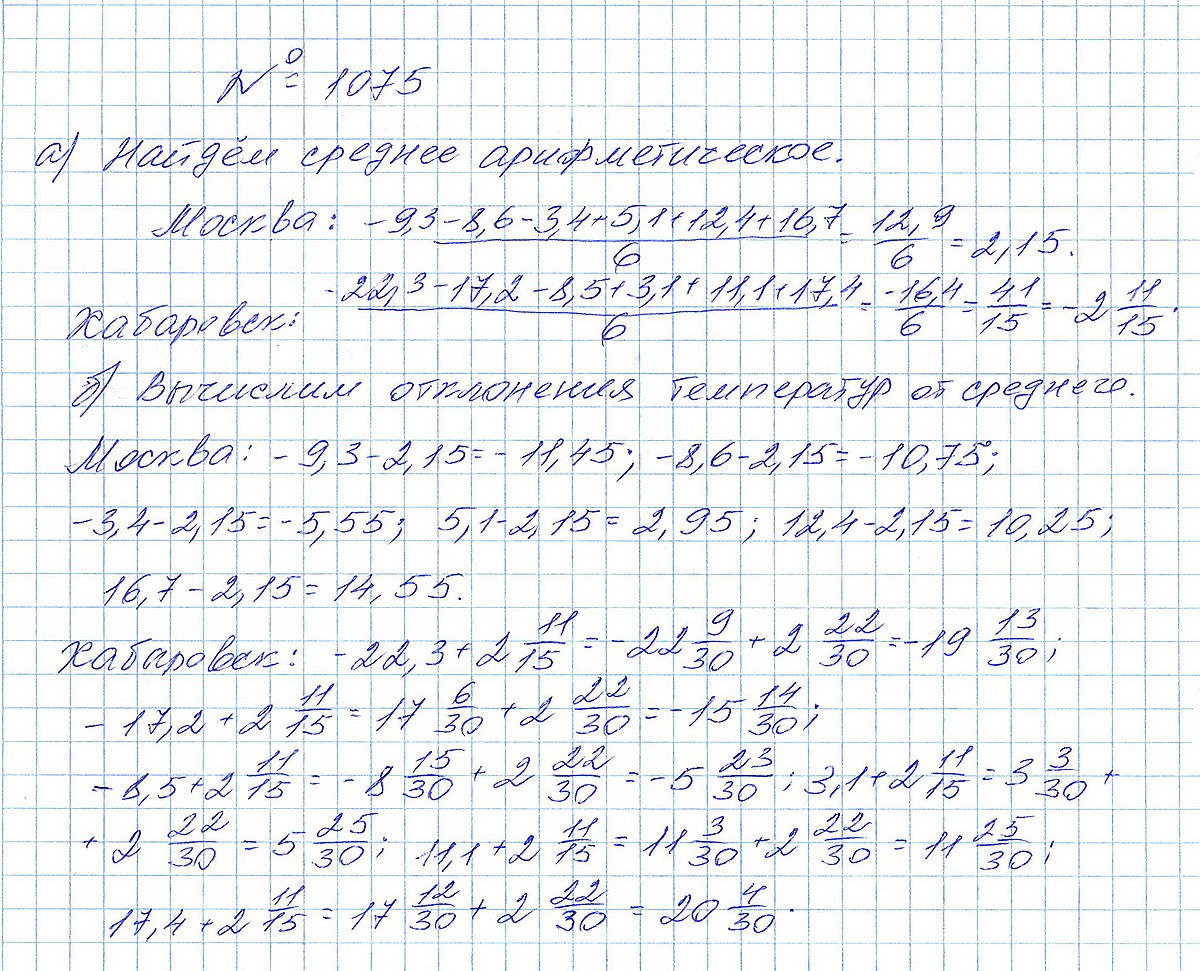 № 1075
а) Найдём среднее арифметическое.
Москва: (-9,3-8,6-3,4+5,1+12,4+16,7)/6 = 12,9/6 = 2,15.
Хабаровск: (-22,3-17,2-8,5+3,1+11,1+17,4)/6 = -16,4/6 = 41/15 = -2 11/15.
б) Вычислим отклонения температур от среднего.
Москва: -9,3-2,15=-11,45; -8,6-2,15=-10,75;
-3,4-2,15=-5,55; 5,1-2,15=2,95; 12,4-2,15=10,25;
16,7-2,15=14,55.
Хабаровск: -22,3+2 11/15 = -22 9/30 + 2 22/30 = -19 13/30;
-17,2+2 11/15 = 17 6/30 + 2 22/30 = -15 14/30;
-8,5+2 11/15 = -8 15/30 + 2 22/30 = -5 23/30; 3,1+2 11/15 = 3 3/30 +
+ 2 22/30 = 5 25/30; 11,1+2 11/15 = 11 3/30 + 2 22/30 = 11 25/30;
17,4+2 11/15 = 17 12/30 + 2 22/30 = 20 4/30.